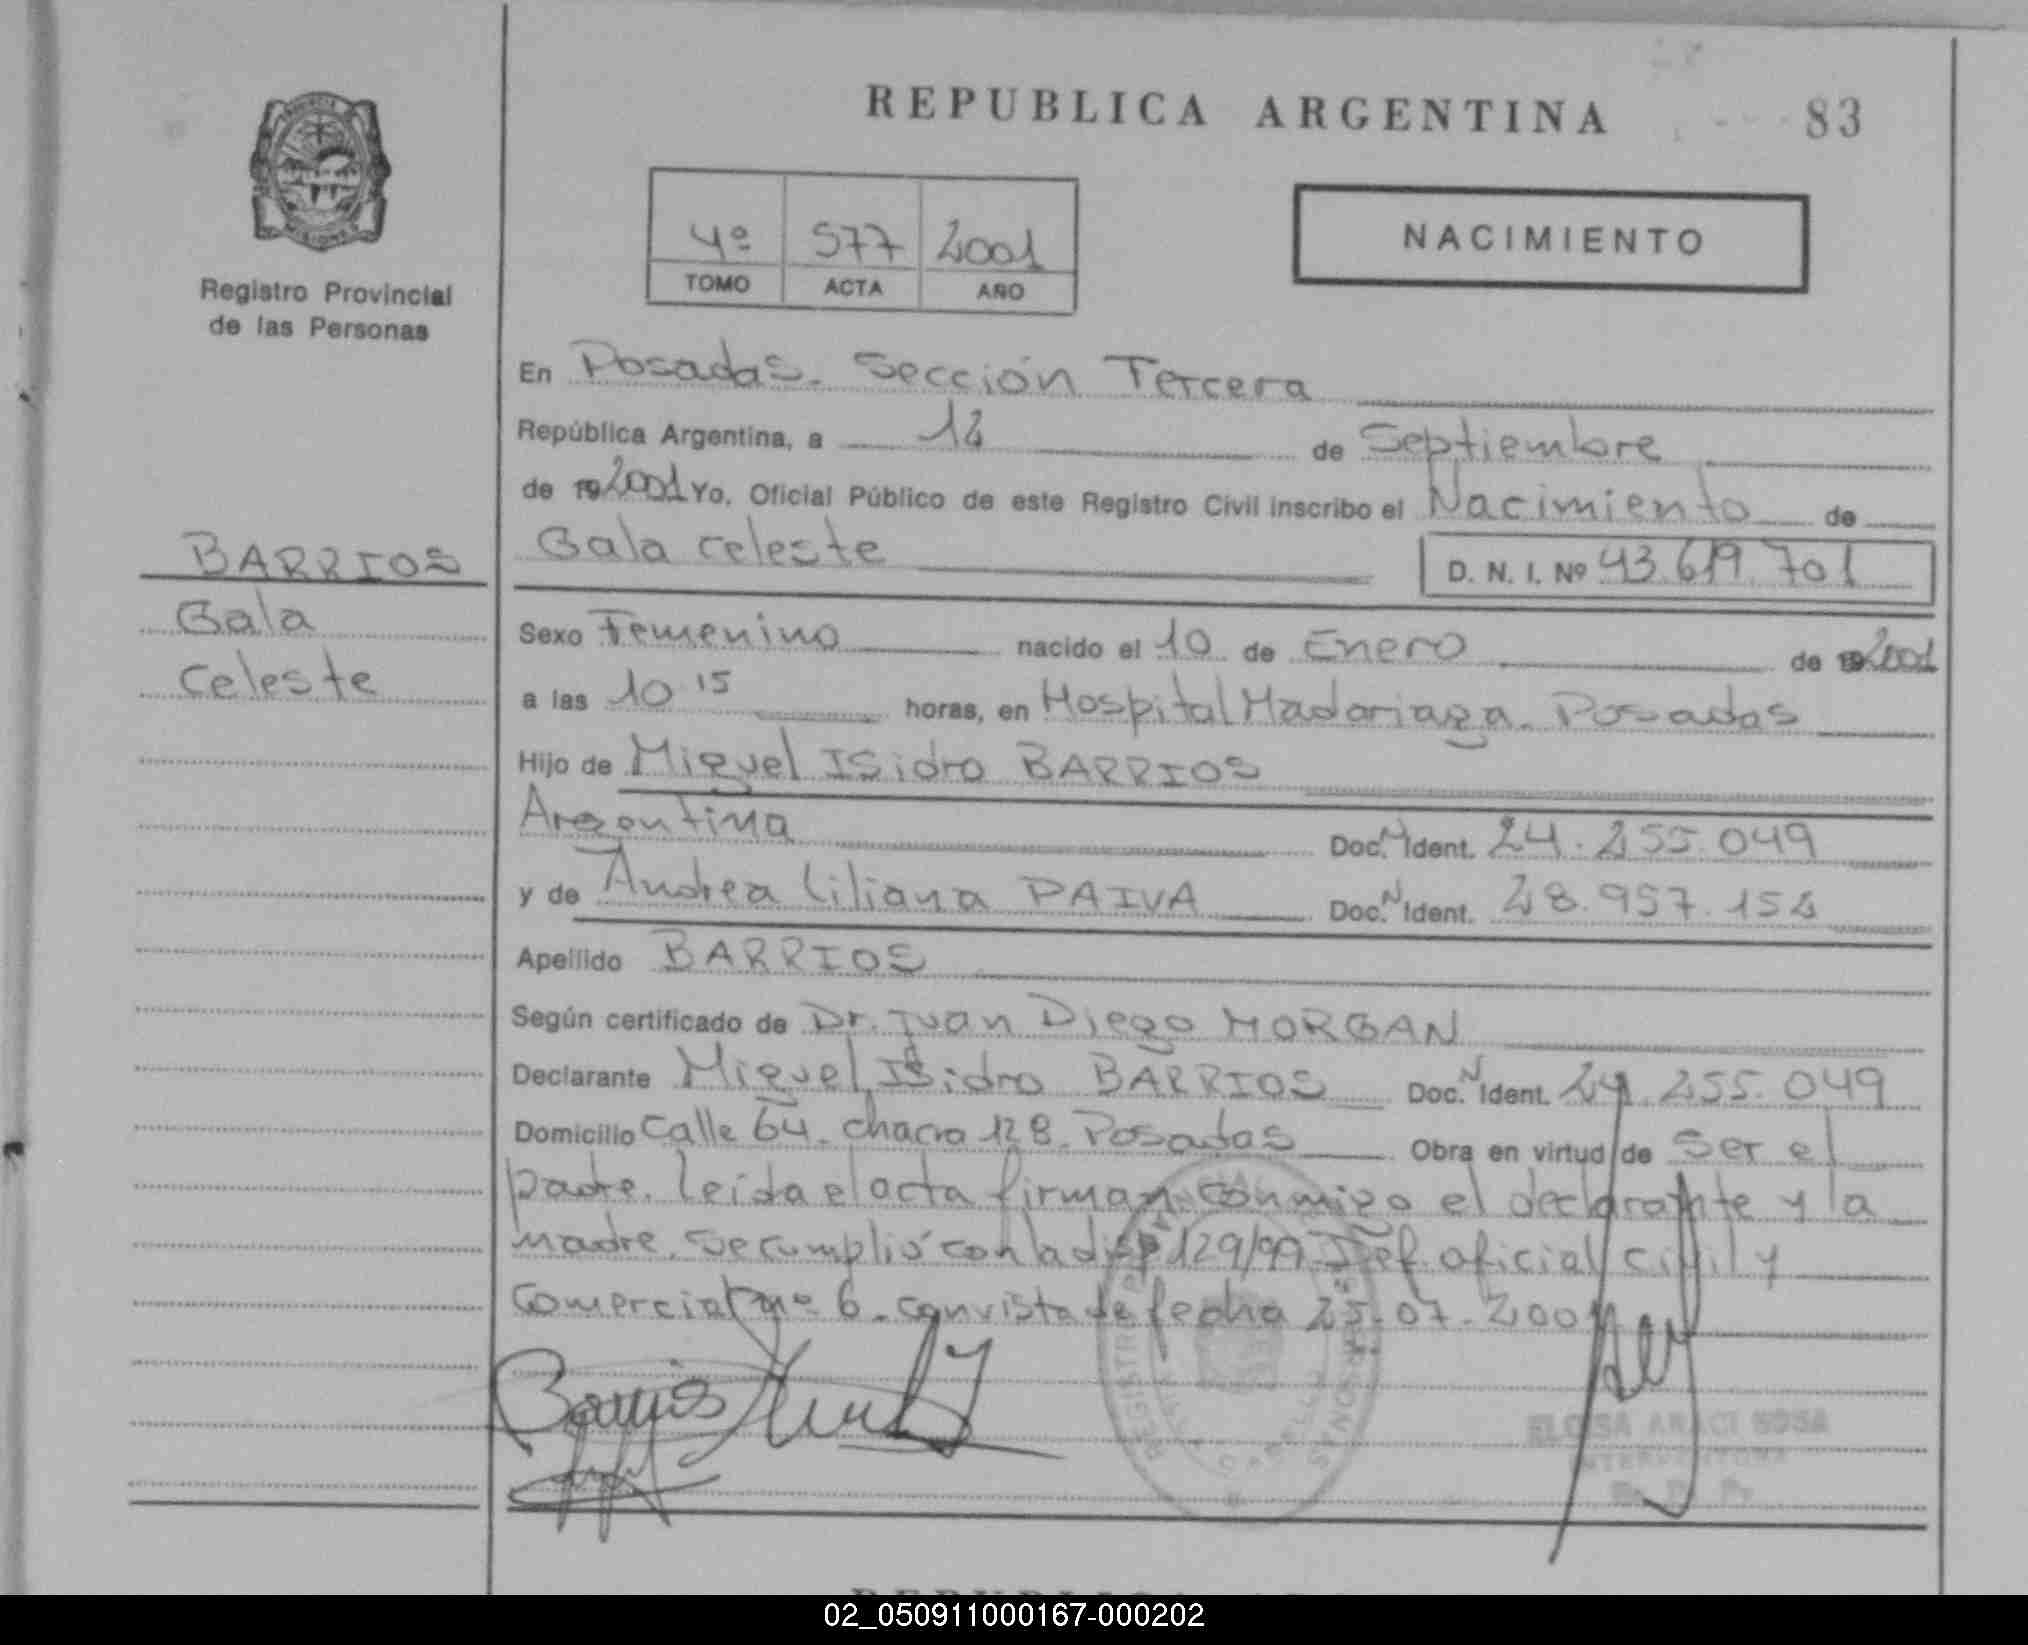 REPUBLICA ARGENTINA
83
4º 577 2001
TOMO ACTA AÑO
NACIMIENTO
Registro Provincial
de las Personas
En Posadas. Sección Tercera
República Argentina, a 12 de Septiembre
de 19 2001 Yo, Oficial Público de este Registro Civil inscribo el Nacimiento de
Gala Celeste D. N. I. Nº 43.619.701
BARRIOS
Gala
Celeste
Sexo Femenino nacido el 10 de Enero de 19 2001
a las 10 15 horas, en Hospital Madariaga. Posadas
Hijo de Miguel Isidro BARRIOS
Argentina Doc. N Ident. 24.255.049
y de Andrea Liliana PAIVA Doc. N Ident. 28.957.152
Apellido BARRIOS
Según certificado de Dr. Juan Diego MORGAN
Declarante Miguel Isidro BARRIOS Doc. N Ident. 24.255.049
Domicilio Calle 64. chacra 128. Posadas Obra en virtud de Ser el
padre. Leída el acta firman conmigo el declarante y la
madre. Se cumplió con la disp 129/99 Def. oficial civil y
Comercial nº 6. con vista de fecha 25.07.2001
Barrios
ELOISA ARACI SOSA
INTERVENTORA
02_050911000167-000202